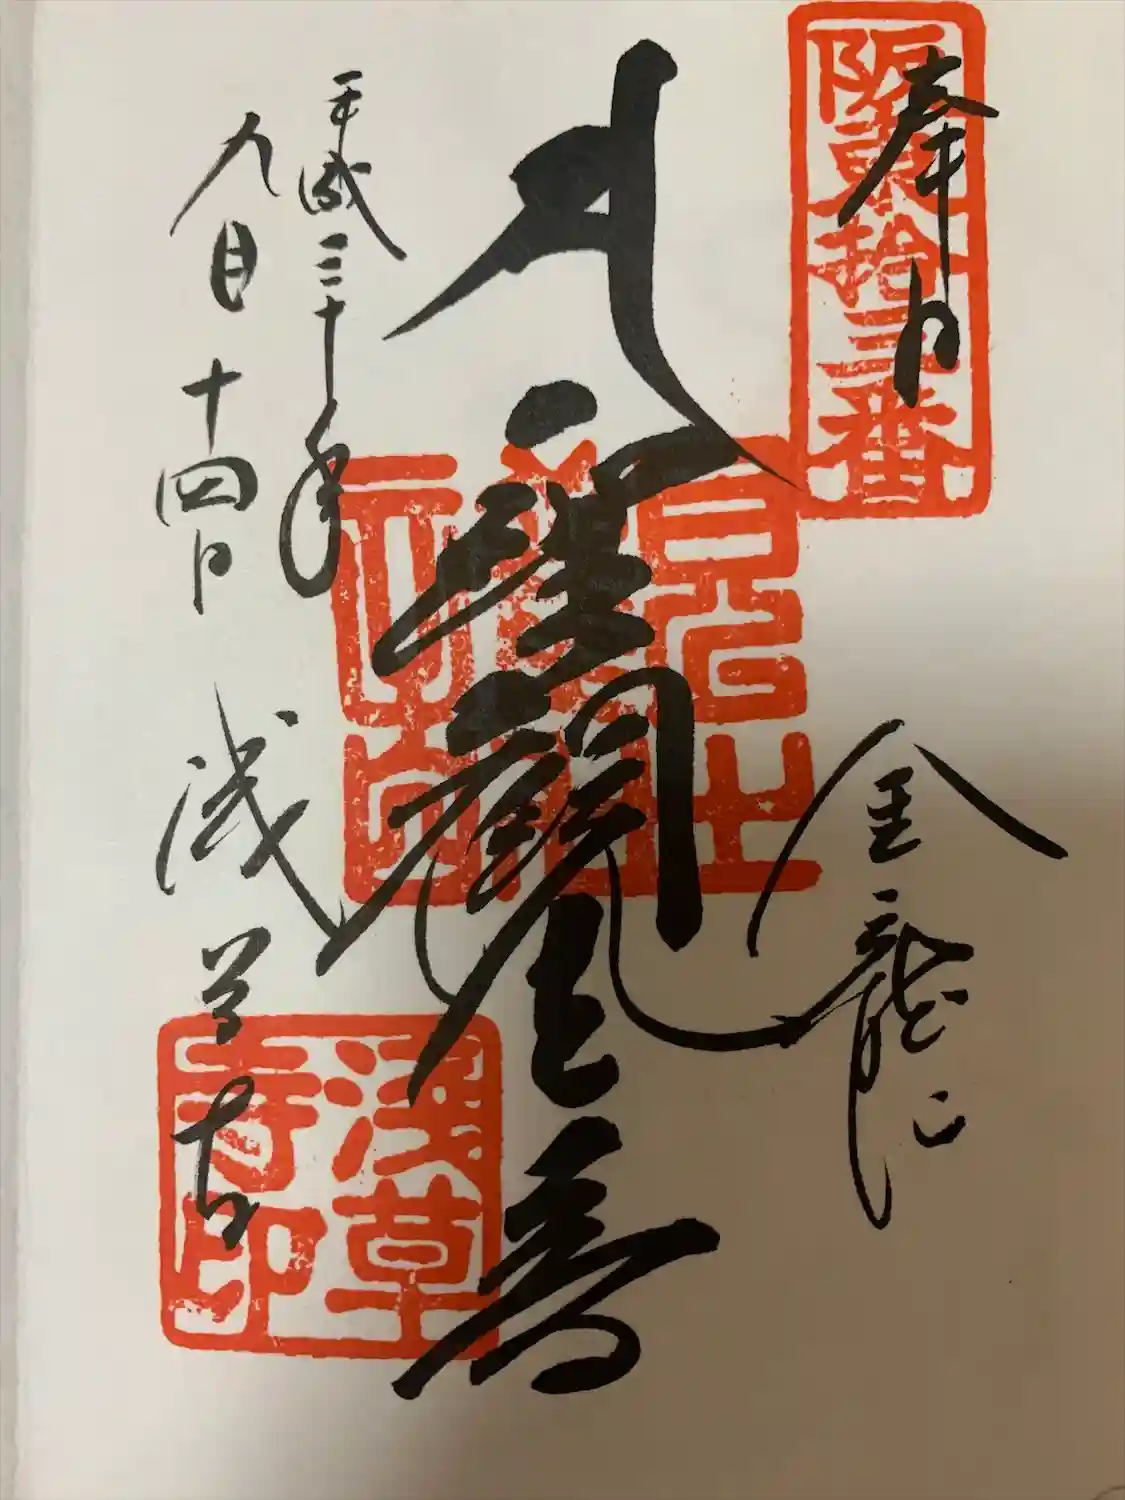 阪東拾三番
奉拝
金龍山
聖観世音
平成三十年
九月十四日
浅草寺
浅草寺印